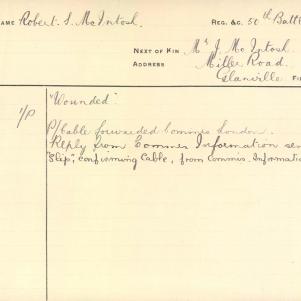 NAME Robert. S. McIntosh. REG. &C. 50th Batt
NEXT OF KIN Mr J. McIntosh.
ADDRESS Miller Road.
Glanville
I/P "Wounded".
P/Cable forwarded Commis London.
Reply from Commis Information
"Slip", confirming Cable, from Commis. Informatio